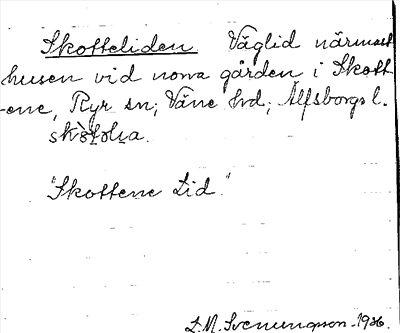 Skotteliden Väglid närmast
husen vid norra gården i Skott-
-ene, Ryr sn; Väne hd; Älfsborgs l.
"Skottene Lid."
L.M. Svenungsson-1926.